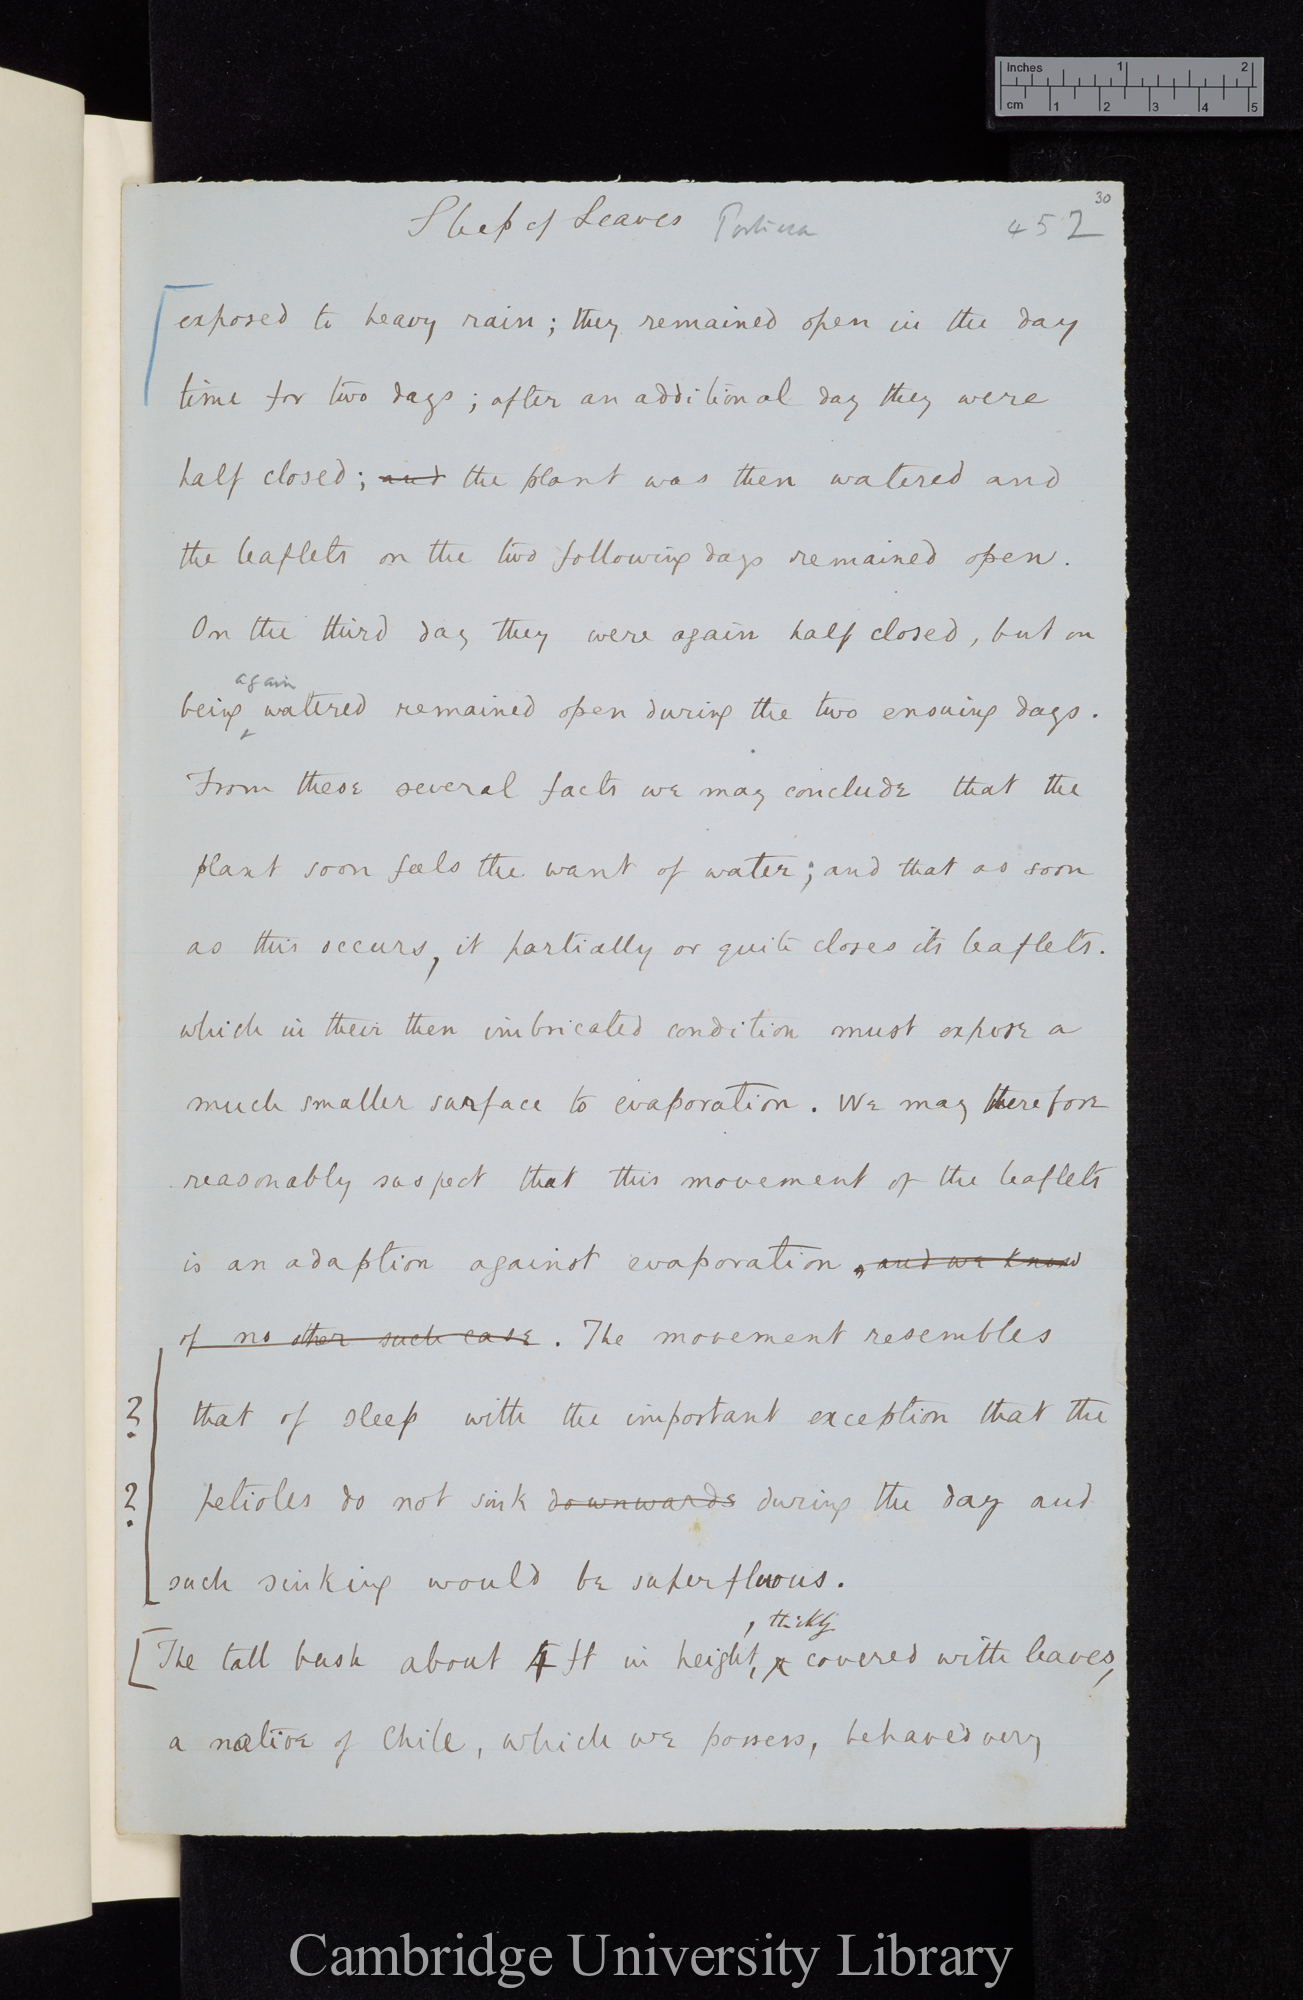 Inches 1 2
cm 1 2 3 4 5
30
Sleep of Leaves Porliera 452
exposed to heavy rain; they remained open in the day
time for two days; after an additional day they were
half closed; and the plant was then watered and
the leaflets on the two following days remained open.
On the third day they were again half closed, but on
again
being watered remained open during the two ensuing days.
From these several facts we may conclude that the
plant soon feels the want of water; and that as soon
as this occurs, it partially or quite closes its leaflets.
which in their then imbricated condition must expose a
much smaller surface to evaporation. We may therefore
reasonably suspect that this movement of the leaflets
is an adaption against evaporation, and we know
of no other such case. The movement resembles
? that of sleep with the important exception that the
? petioles do not sink downwards during the day and
such sinking would be superfluous.
, thickly
[The tall bush about 4 ft in height, covered with leaves,
a native of Chile, which we possess, behaved very
Cambridge University Library